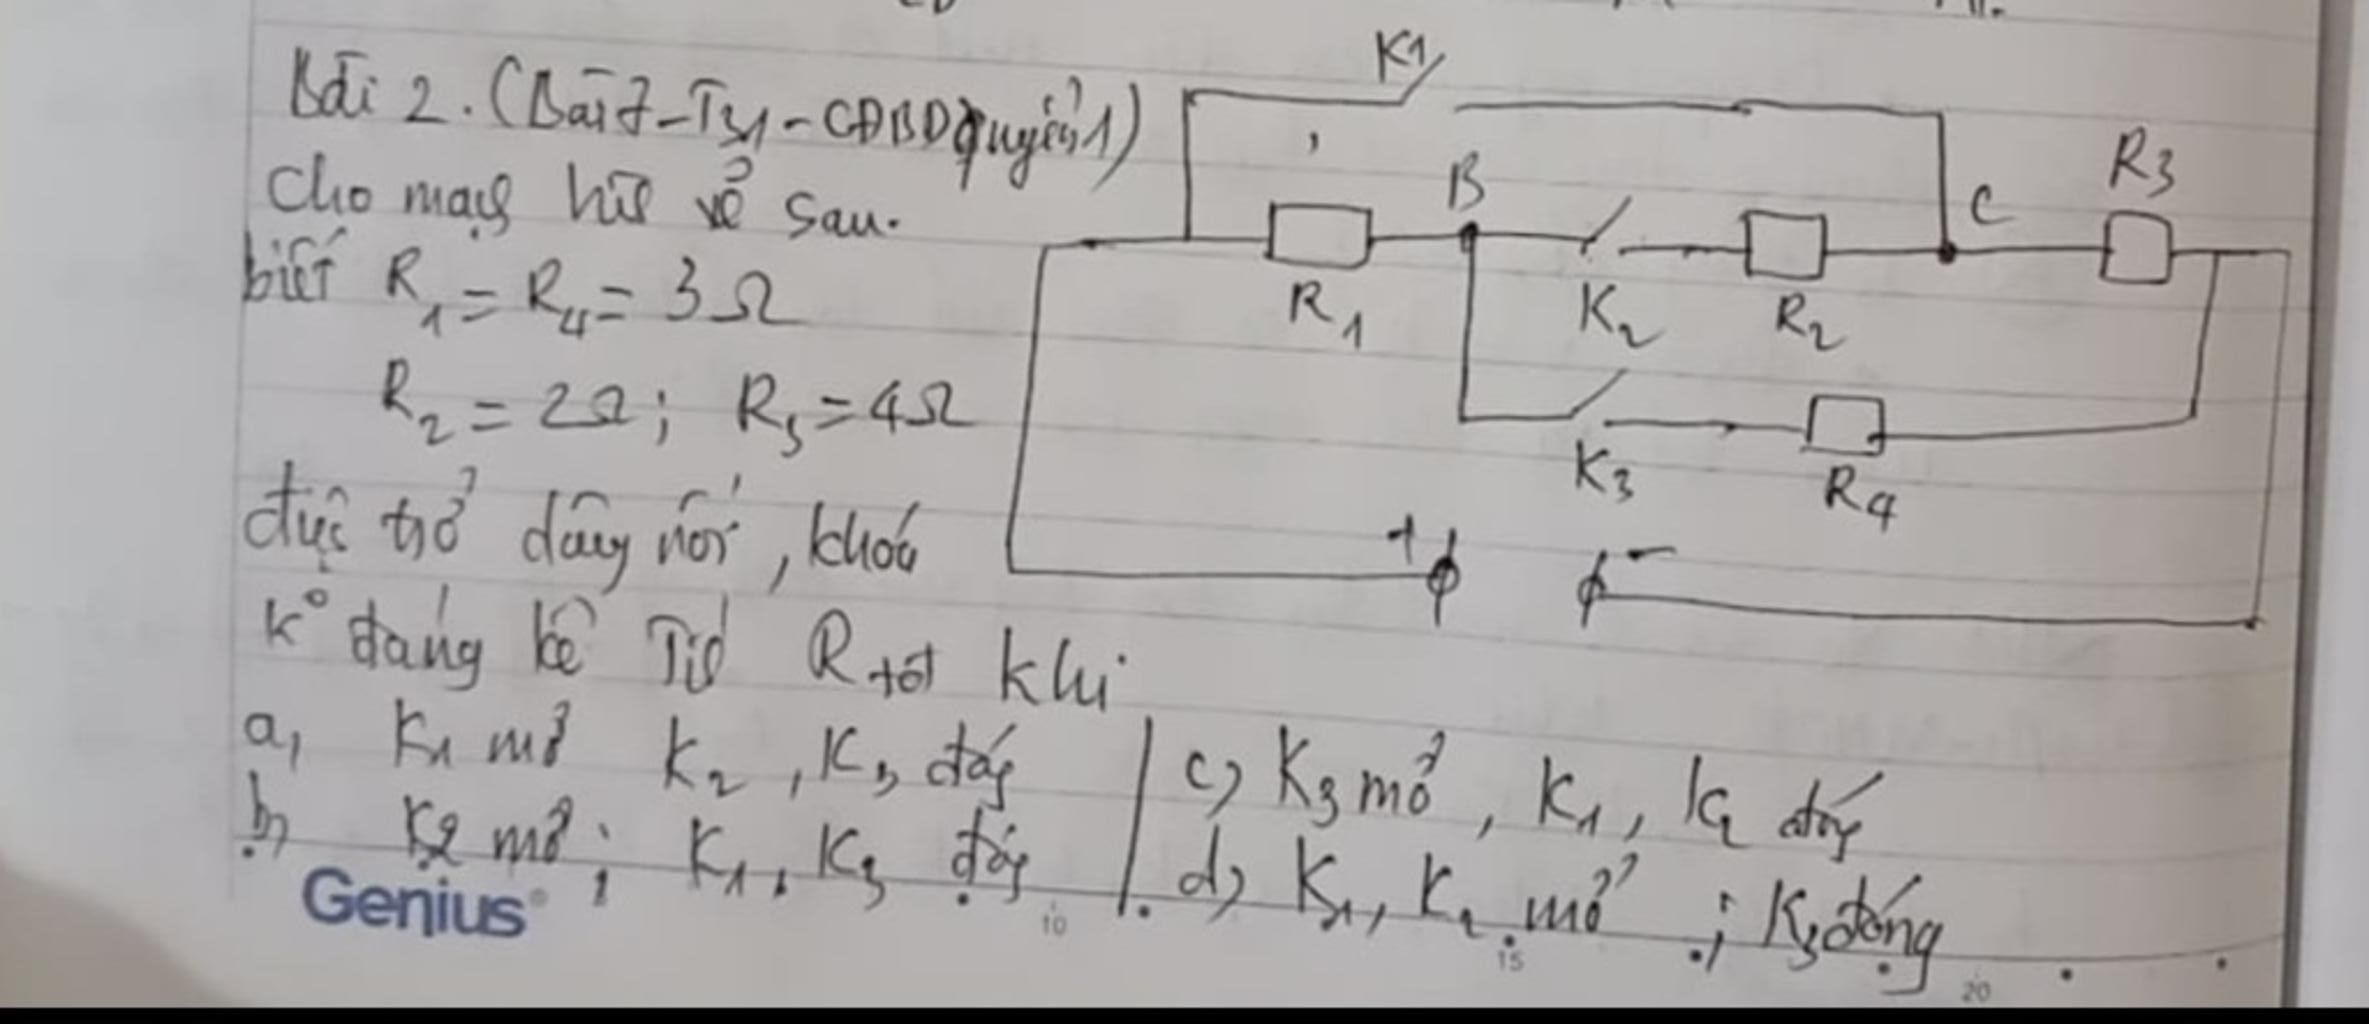 Bài 2. (Bài 7-T31-CĐBD quyển 1)
Cho mạch hình vẽ sau.
biết R1 = R4 = 3Ω
R2 = 2Ω; R3 = 4Ω
điện trở dây nối, khóa
K° đáng kể Tính Rtđ khi
a, K1 mở K2, K3 đóng
b, K2 mở; K1, K3 đóng
c) K3 mở, K1, K2 đóng
d) K1, K2 mở; K3 đóng
K1
B
C
R3
R1
K2
R2
K3
R4
+
-
Genius
10
15
20